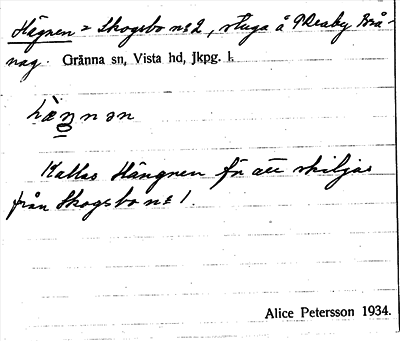 Hägnen = Skogsbo nr 2, stuga å Reaby
Gränna sn, Vista hd, Jkpg. l.
Kallas Hängnen för att skiljas
från Skogsbo nr 1.
Alice Petersson 1934.